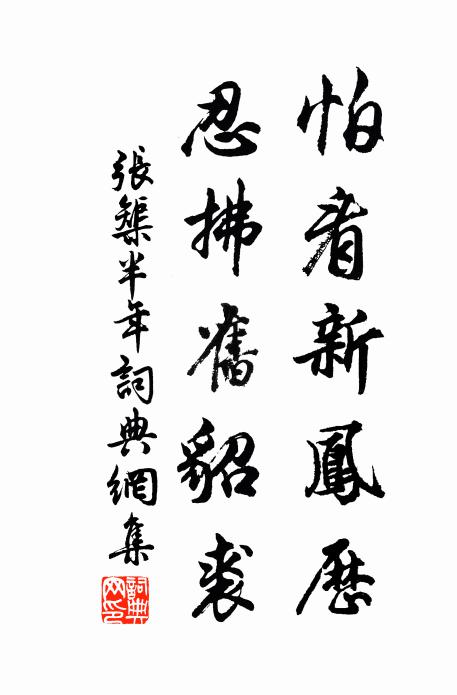 怕看新鳳曆
忍拂舊貂裘
張榘半年詞典網集
詞典网印